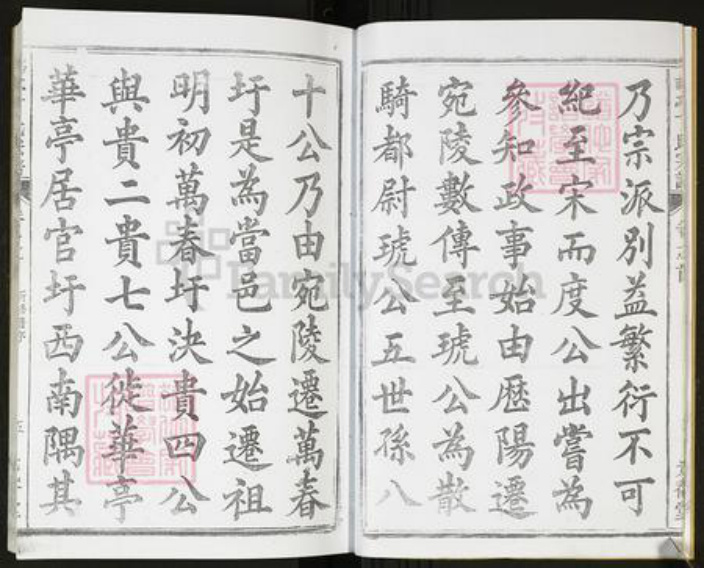 乃宗派别益繁衍不可
紀至宋而度公出嘗為
參知政事始由歷陽遷
宛陵數傳至琥公為散
騎都尉琥公五世孫八
十公乃由宛陵遷萬春
圩是為當邑之始遷祖
明初萬春圩決貴四公
與貴二貴七公徙華亭
華亭居官圩西南隅其
FamilySearch